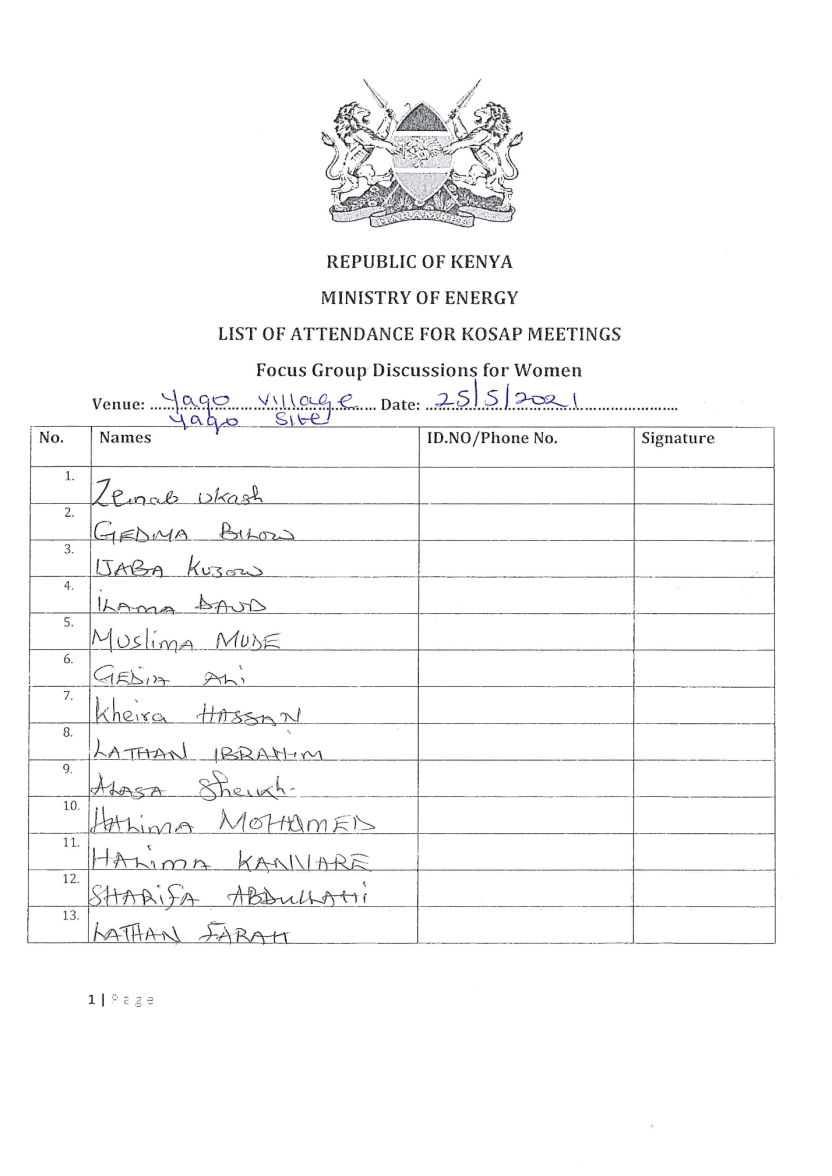 REPUBLIC OF KENYA
MINISTRY OF ENERGY
LIST OF ATTENDANCE FOR KOSAP MEETINGS
Focus Group Discussions for Women
Venue: Yago village Date: 25/5/2021
Yago site
No. Names ID.NO/Phone No. Signature
1. Zeinab Ukash
2. GEDMA BILOW
3. IJABA KUSOW
4. ILAMA DAUD
5. MUSlimA MUDE
6. GEDIA ALi
7. Kheira HASSAN
8. LATHAN IBRAHIM
9. ALASA Sheikh
10. HALimA MOHAMED
11. HALimA KANNARE
12. SHARifA ABDULLAHi
13. LATHAN FARAH
1 | Page